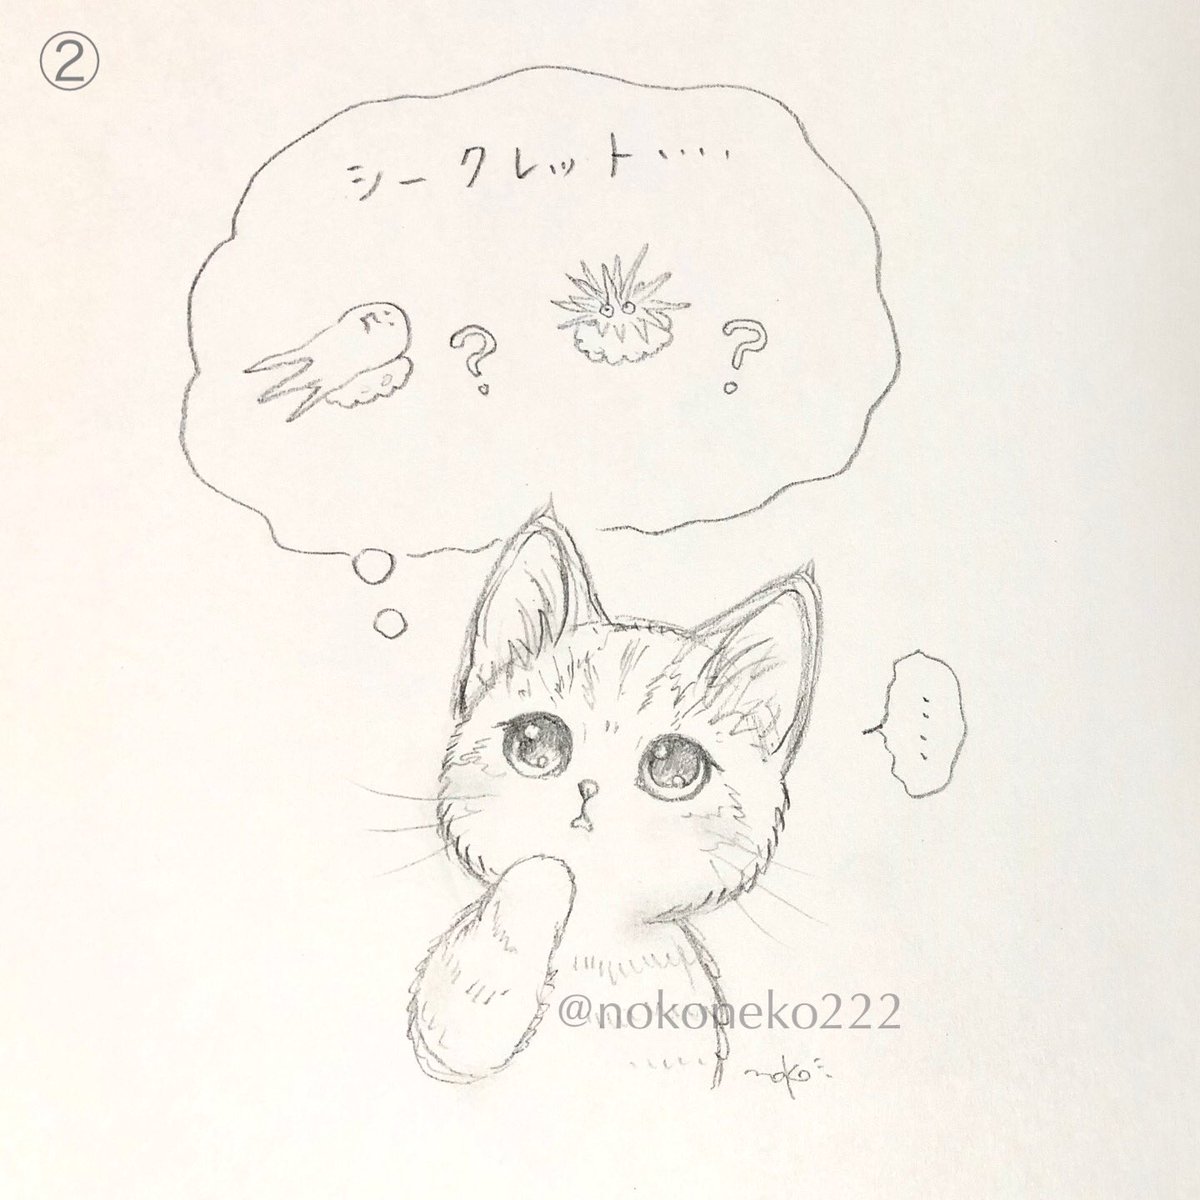 ②
シークレット‥‥
?
?
‥‥
@nokoneko222
noko